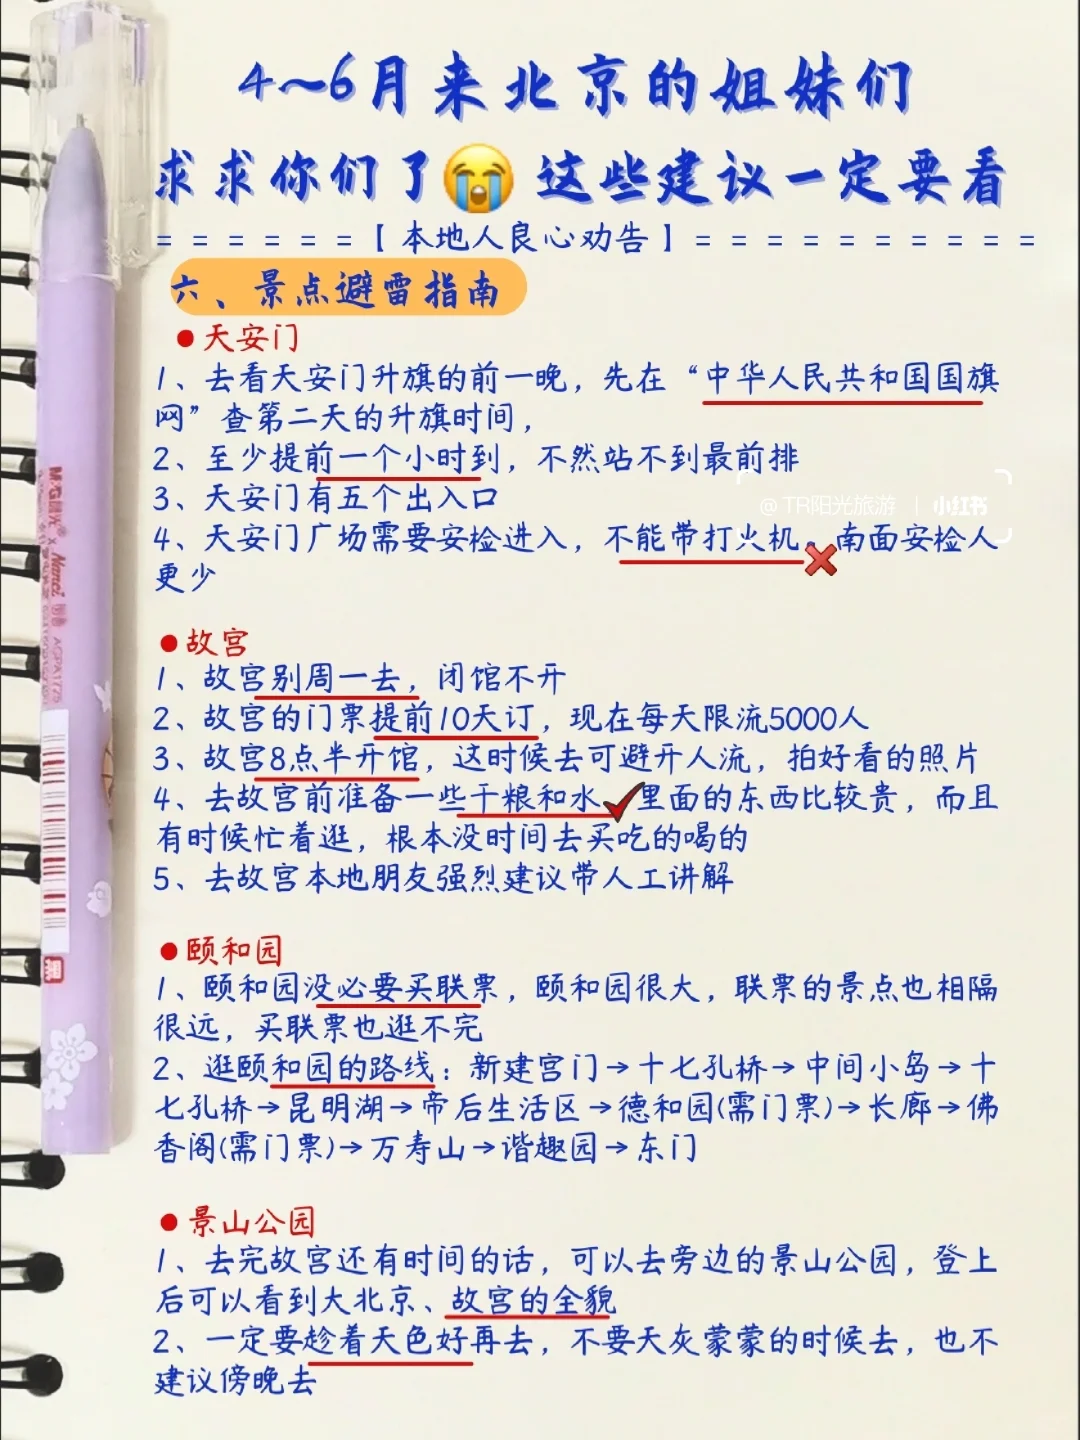 4~6月来北京的姐妹们
求求你们了😭这些建议一定要看
======【本地人良心劝告】==========
六、景点避雷指南
●天安门
1、去看天安门升旗的前一晚，先在“中华人民共和国国旗
网”查第二天的升旗时间，
2、至少提前一个小时到，不然站不到最前排
3、天安门有五个出入口
@TR阳光旅游 | 小红书
4、天安门广场需要安检进入，不能带打火机。❌南面安检人
更少
●故宫
1、故宫别周一去，闭馆不开
2、故宫的门票提前10天订，现在每天限流5000人
3、故宫8点半开馆，这时候去可避开人流，拍好看的照片
4、去故宫前准备一些干粮和水✔里面的东西比较贵，而且
有时候忙着逛，根本没时间去买吃的喝的
5、去故宫本地朋友强烈建议带人工讲解
●颐和园
1、颐和园没必要买联票，颐和园很大，联票的景点也相隔
很远，买联票也逛不完
2、逛颐和园的路线：新建宫门→十七孔桥→中间小岛→十
七孔桥→昆明湖→帝后生活区→德和园(需门票)→长廊→佛
香阁(需门票)→万寿山→谐趣园→东门
●景山公园
1、去完故宫还有时间的话，可以去旁边的景山公园，登上
后可以看到大北京、故宫的全貌
2、一定要趁着天色好再去，不要天灰蒙蒙的时候去，也不
建议傍晚去
M&G晨光® x Nanci
AGPA1725
黑